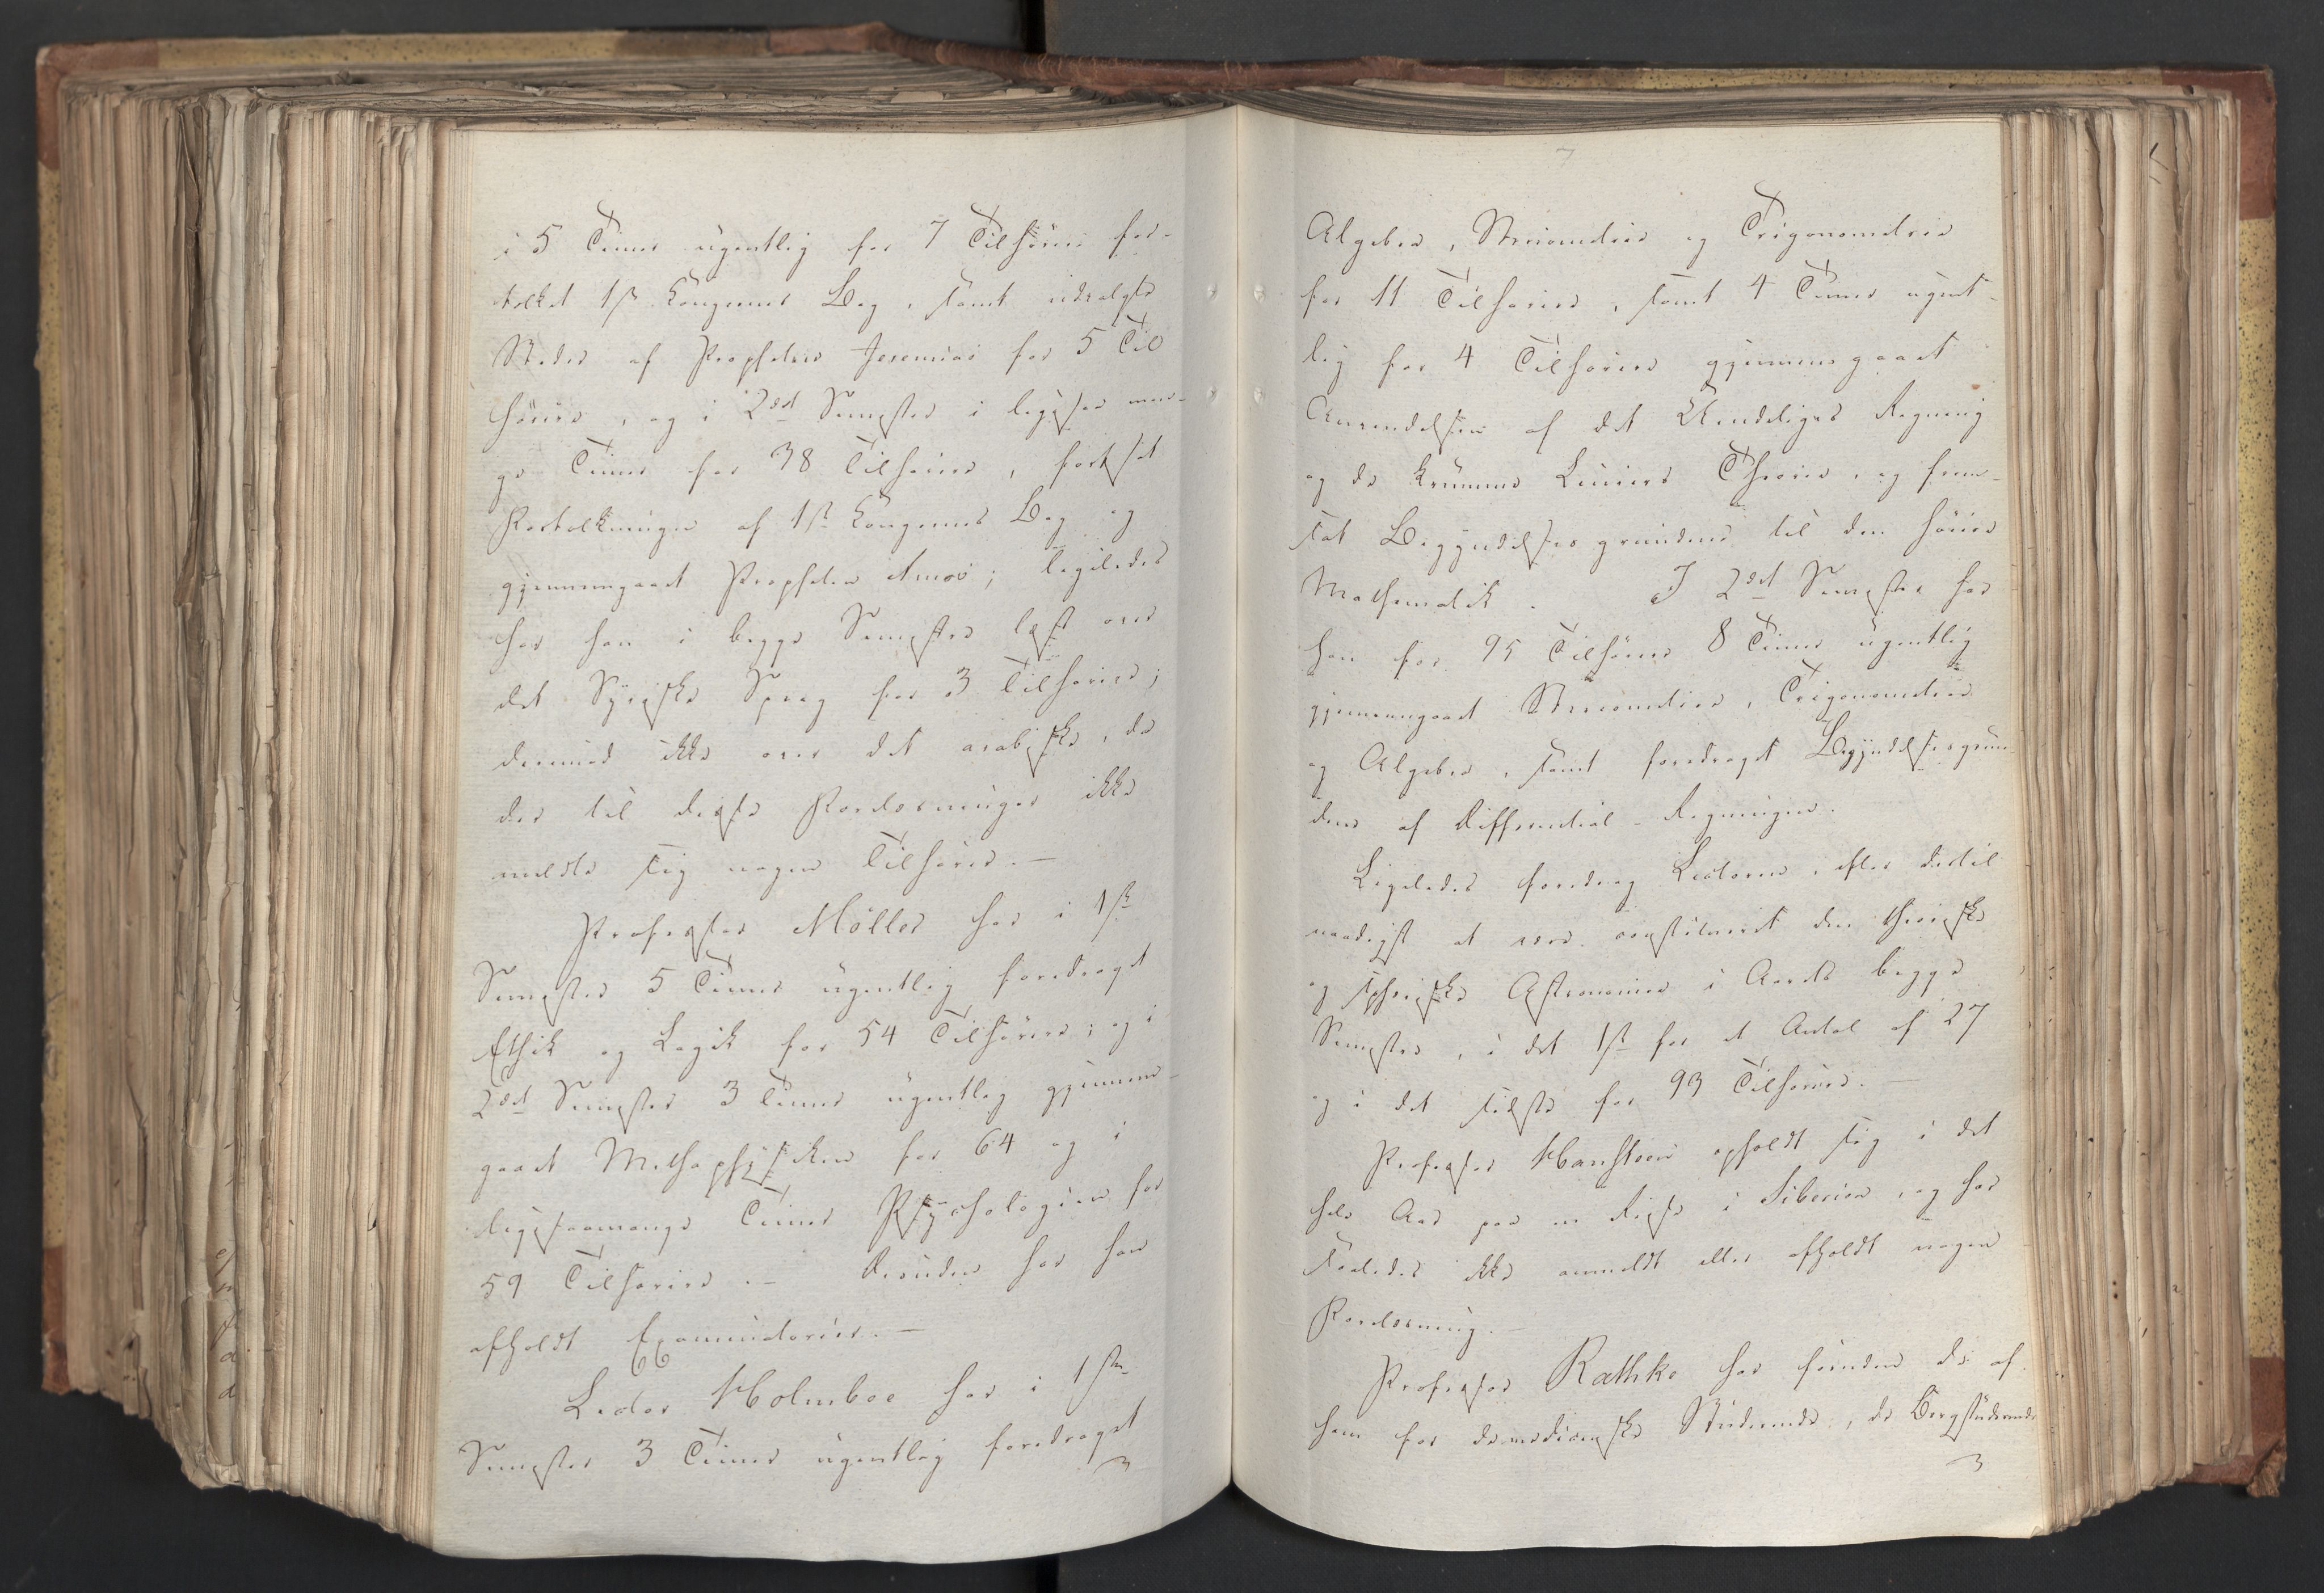 i 5 Timer ugentlig for 7 Tilhörere for-
tolket 1ste Kongernes Bog, samt udvalgte
Steder af Propheten Jeremias for 5 Til
hörere, og i 2det Semester i ligesaa man-
ge Timer for 38 Tilhörere, fortsat
Fortolkningen af 1ste Kongernes Bog og
gjennemgaaet Propheten Amos; ligeledes
har han i begge Semestre læst over
det Syriske Sprog for 3 Tilhörere;
derimod ikke over det arabiske, da
der til disse Forelæsninger ikke
meldte sig nogen Tilhörer. —
Professor Möller har i 1ste
Semester 5 Timer ugentlig foredraget
Ethik og Logik for 54 Tilhörere; og i
2det Semester 3 Timer ugentlig gjennem-
gaaet Methaphysiken for 64 og i
ligesaamange Timer Psychologien for
59 Tilhörere. — Desuden har han
afholdt Examinatorier. —
Lector Holmboe har i 1ste
Semester 3 Timer ugentlig foredraget
7
Algebra, Stereometrie og Trigonometrie
for 11 Tilhörere, samt 4 Timer ugent-
lig for 4 Tilhörere gjennemgaaet
Anvendelsen af det Uendeliges Regning
og de krumme Liniers Theorie, og frem-
sat Begyndelsesgrundene til den höiere
Mathematik. I 2det Semester har
han for 95 Tilhörere 8 Timer ugentlig
gjennemgaaet Stereometrie, Trigonometrie
og Algebra, samt foredraget Begyndelsesgrun-
dene af Differential-Regningen.
Ligeledes foredrog Lectoren, efter dertil
naadigst at være constitueret den theoriske
og sphæriske Astronomie i Aarets begge
Semestre, i det 1ste for et Antal af 27
og i det sidste for 93 Tilhörere. —
Professor Hansteen opholdt sig i det
hele Aar paa en Reise i Siberien, og har
saaledes ikke anmeldt eller afholdt nogen
Forelæsning. —
Professor Rathke har funden de af
ham for de medicinske Studerende, de Bergstuderende